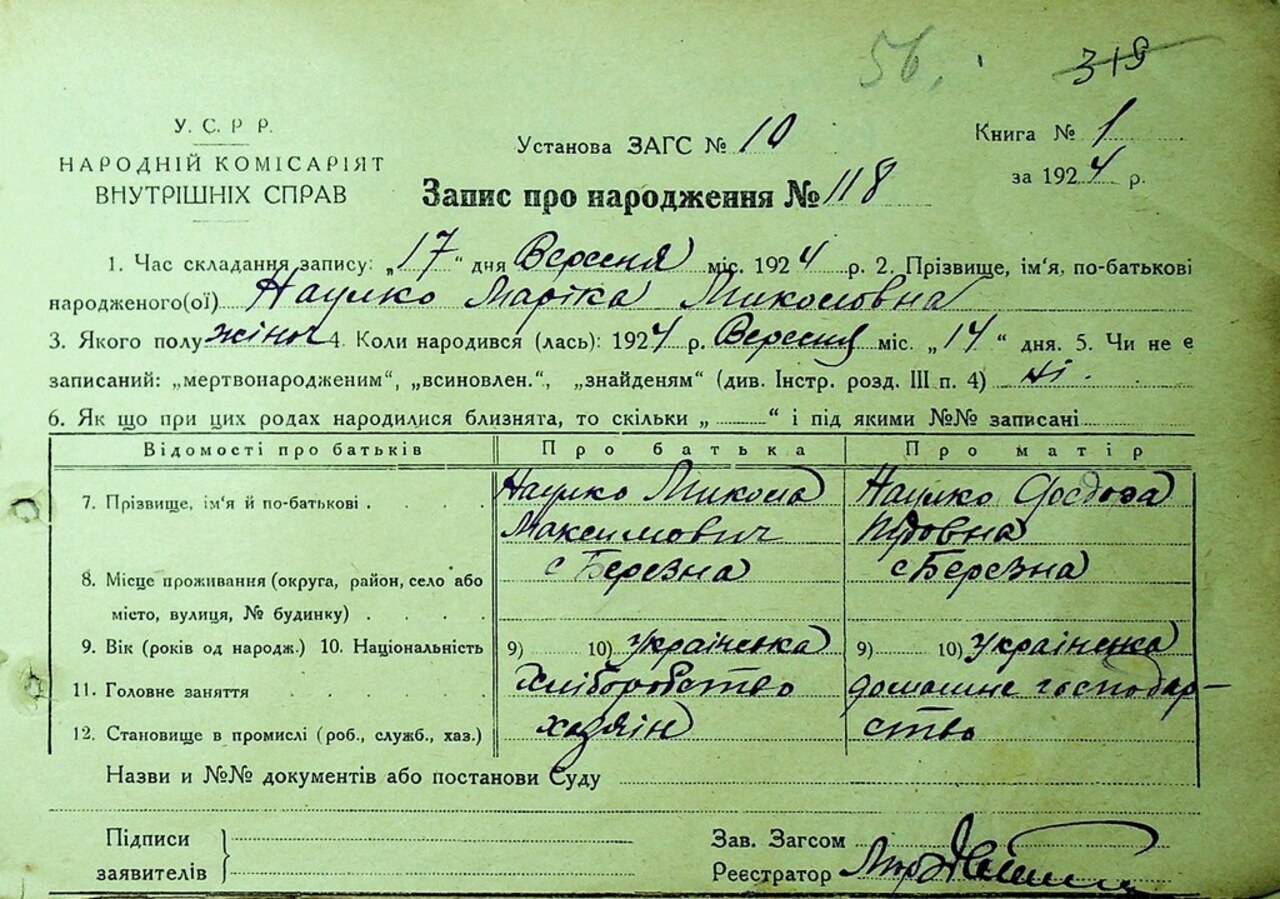 56. 319
У. С. Р Р.
НАРОДНІЙ КОМІСАРІЯТ
ВНУТРІШНІХ СПРАВ
Установа ЗАГС № 10
Книга № 1
за 1924 р.
Запис про народження № 118
1. Час складання запису: „17“ дня Вересня міс. 1924 р. 2. Прізвище, ім'я, по-батькові
народженого(ої) Наулко Маріка Миколовна
3. Якого полу жіноч 4. Коли народився (лась): 1924 р. Вересня міс. „14“ дня. 5. Чи не є
записаний: „мертвонародженим“, „всиновлен.“, „знайденям“ (див. Інстр. розд. III п. 4) ні.
6. Як що при цих родах народилися близнята, то скільки „ “ і під якими №№ записані
Відомості про батьків Про батька Про матір
7. Прізвище, ім'я й по-батькові Наулко Микола Наулко Федоза
Максимович
8. Місце проживання (округа, район, село або с Березна с Березна
місто, вулиця, № будинку)
9. Вік (років од народж.) 10. Національність 9) 10) Українська 9) 10) Українська
11. Головне заняття Хліборобство домашнє господар-
12. Становище в промислі (роб., служб., хаз.) хазяїн ство
Назви и №№ документів або постанови Суду
Підписи
заявителів
Зав. Загсом
Реєстратор